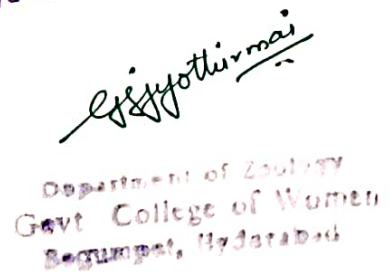 G.S.Jyothirmai
Department of Zoology
Govt College of Women
Begumpet, Hyderabad